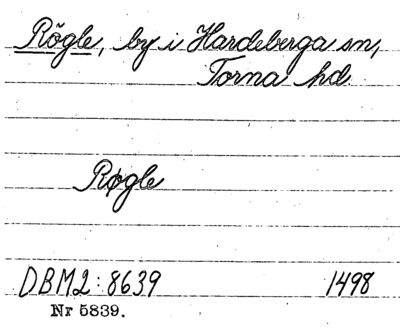 Rögle, by i Hardeberga sn,
Torna hd
Røgle
DBM2:8639 1498
Nr 5839.